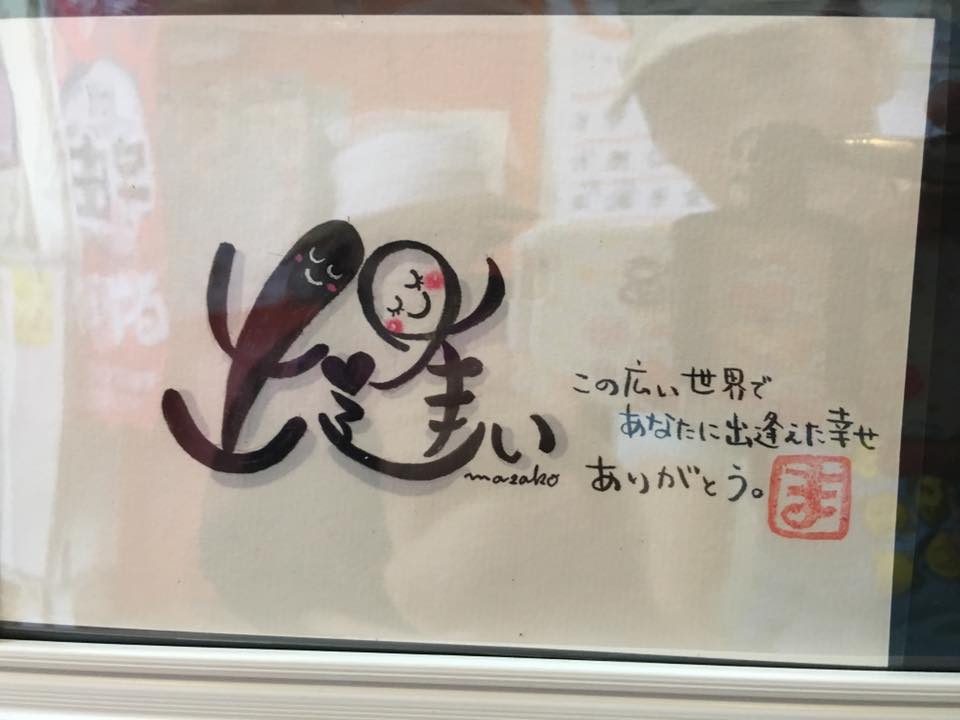 出逢い
masako
この広い世界で
あなたに出逢えた幸せ
ありがとう。
ま